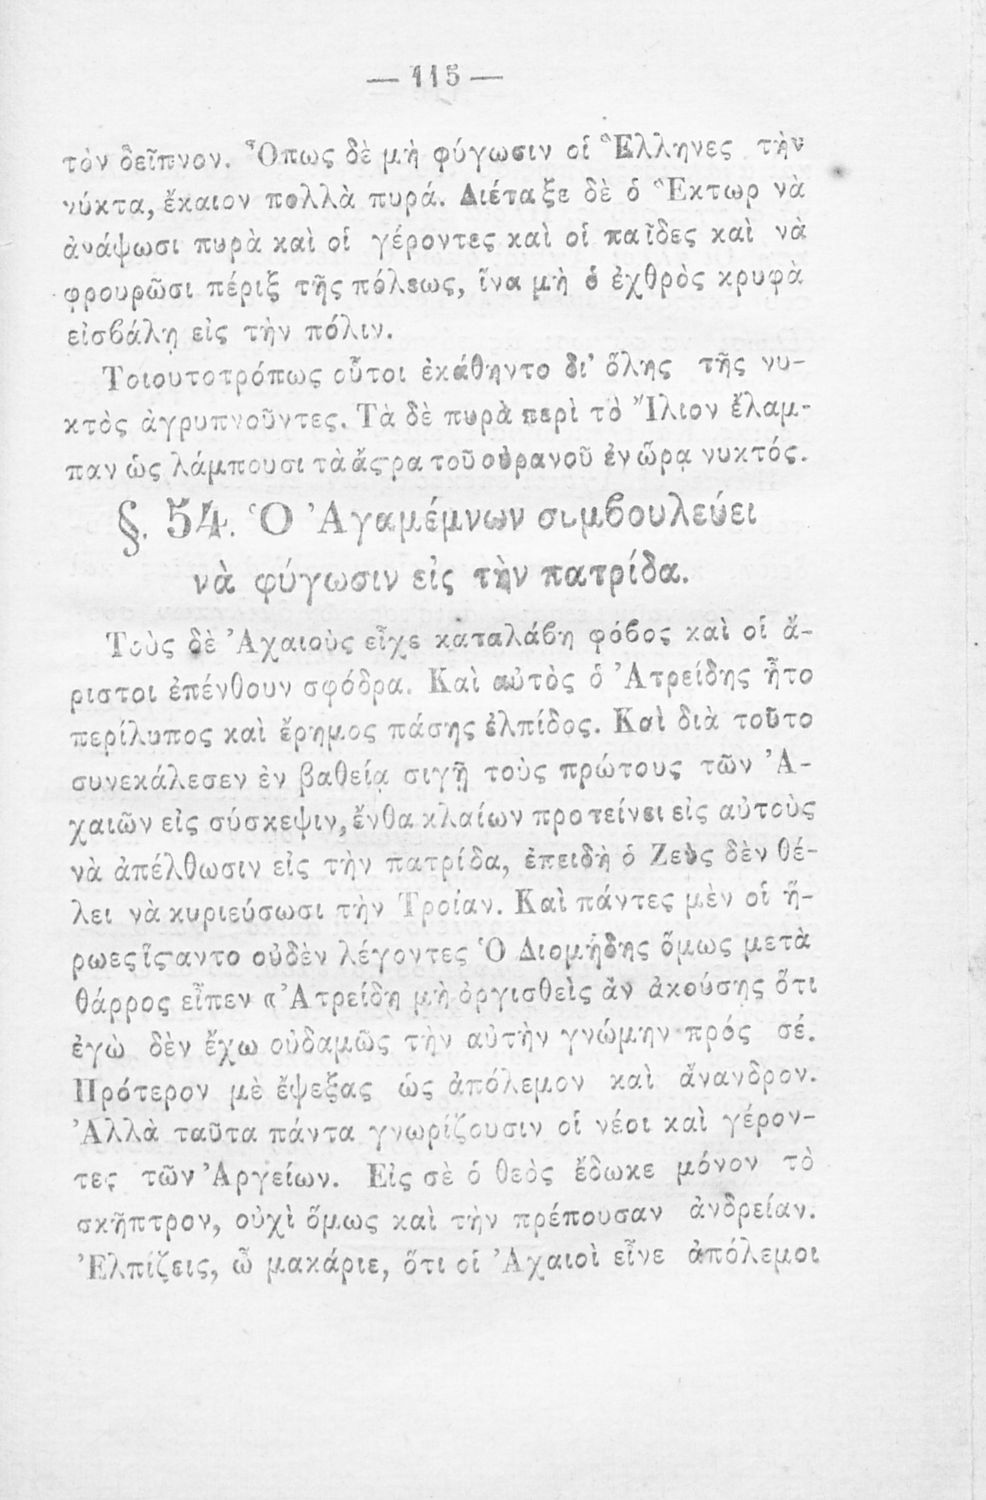 — 115 —
τὸν δεῖπνον. Ὅπως δὲ μὴ φύγωσιν οἱ Ἕλληνες τὴν
νύκτα, ἔκαιον πολλὰ πυρά. Διέταξε δὲ ὁ Ἕκτωρ νὰ
ἀνάψωσι πυρὰ καὶ οἱ γέροντες καὶ οἱ παῖδες καὶ νὰ
φρουρῶσι πέριξ τῆς πόλεως, ἵνα μὴ ὁ ἐχθρὸς κρυφὰ
εἰσβάλῃ εἰς τὴν πόλιν.
Τοιουτοτρόπως οὗτοι ἐκάθηντο δι’ ὅλης τῆς νυ-
κτὸς ἀγρυπνοῦντες. Τὰ δὲ πυρὰ περὶ τὸ Ἴλιον ἔλαμ-
παν ὡς λάμπουσι τὰ ἄστρα τοῦ οὐρανοῦ ἐν ὥρᾳ νυκτός.
§. 54. Ὁ Ἀγαμέμνων συμβουλεύει
νὰ φύγωσιν εἰς τὴν πατρίδα.
Τοὺς δὲ Ἀχαιοὺς εἶχε καταλάβη φόβος καὶ οἱ ἄ-
ριστοι ἐπένθουν σφόδρα. Καὶ αὐτὸς ὁ Ἀτρείδης ἦτο
περίλυπος καὶ ἔρημος πάσης ἐλπίδος. Καὶ διὰ τοῦτο
συνεκάλεσεν ἐν βαθείᾳ σιγῇ τοὺς πρώτους τῶν Ἀ-
χαιῶν εἰς σύσκεψιν, ἔνθα κλαίων προτείνει εἰς αὐτοὺς
νὰ ἀπέλθωσιν εἰς τὴν πατρίδα, ἐπειδὴ ὁ Ζεὺς δὲν θέ-
λει νὰ κυριεύσωσι τὴν Τροίαν. Καὶ πάντες μὲν οἱ ἥ-
ρωες ἵσταντο οὐδὲν λέγοντες Ὁ Διομήδης ὅμως μετὰ
θάρρος εἶπεν «Ἀτρείδη μὴ ὀργισθεὶς ἂν ἀκούσῃς ὅτι
ἐγὼ δὲν ἔχω οὐδαμῶς τὴν αὐτὴν γνώμην πρός σέ.
Πρότερον μὲ ἔψεξας ὡς ἀπόλεμον καὶ ἄνανδρον.
Ἀλλὰ ταῦτα πάντα γνωρίζουσιν οἱ νέοι καὶ γέρον-
τες τῶν Ἀργείων. Εἰς σὲ ὁ θεὸς ἔδωκε μόνον τὸ
σκῆπτρον, οὐχὶ ὅμως καὶ τὴν πρέπουσαν ἀνδρείαν.
Ἐλπίζεις, ὦ μακάριε, ὅτι οἱ Ἀχαιοὶ εἶνε ἀπόλεμοι